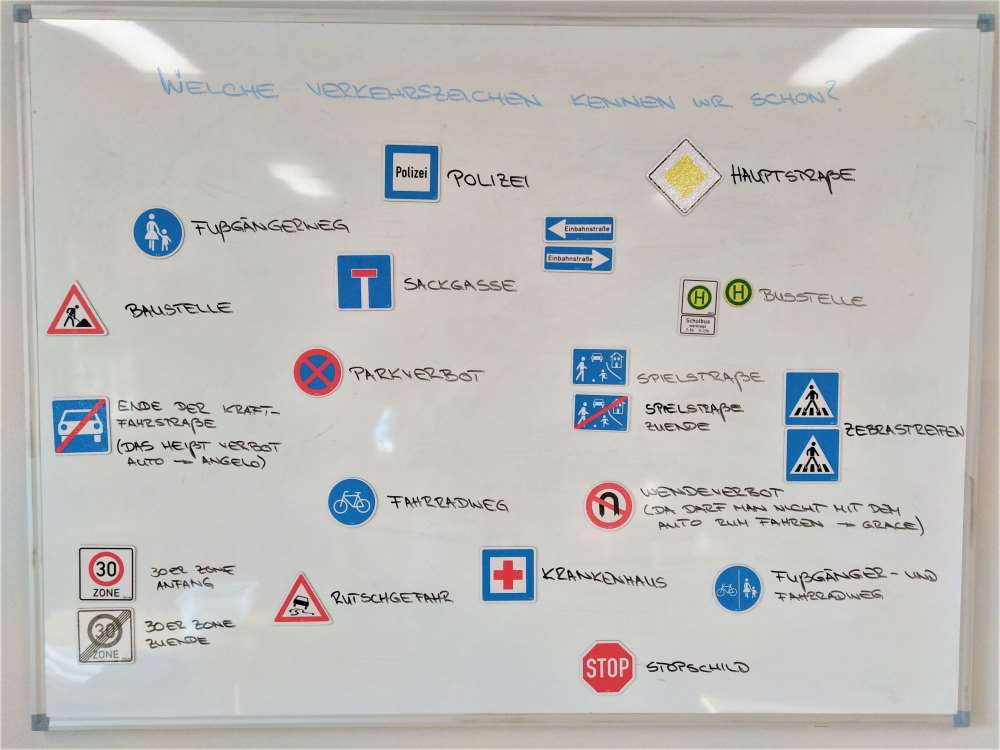 WELCHE VERKEHRSZEICHEN KENNEN WIR SCHON?
Polizei
POLIZEI
HAUPTSTRAßE
FUßGÄNGERWEG
Einbahnstraße
Einbahnstraße
SACKGASSE
BAUSTELLE
H
H
Schulbus
BUSSTELLE
PARKVERBOT
SPIELSTRAßE
SPIELSTRAßE
ZUENDE
ENDE DER KRAFT-
FAHRSTRAßE
(DAS HEIßT VERBOT
AUTO → ANGELO)
ZEBRASTREIFEN
FAHRRADWEG
WENDEVERBOT
(DA DARF MAN NICHT MIT DEM
AUTO RUM FAHREN → GRACE)
30
ZONE
30ER ZONE
ANFANG
RUTSCHGEFAHR
KRANKENHAUS
FUßGÄNGER- UND
FAHRRADWEG
30
ZONE
30ER ZONE
ZUENDE
STOP
STOPSCHILD